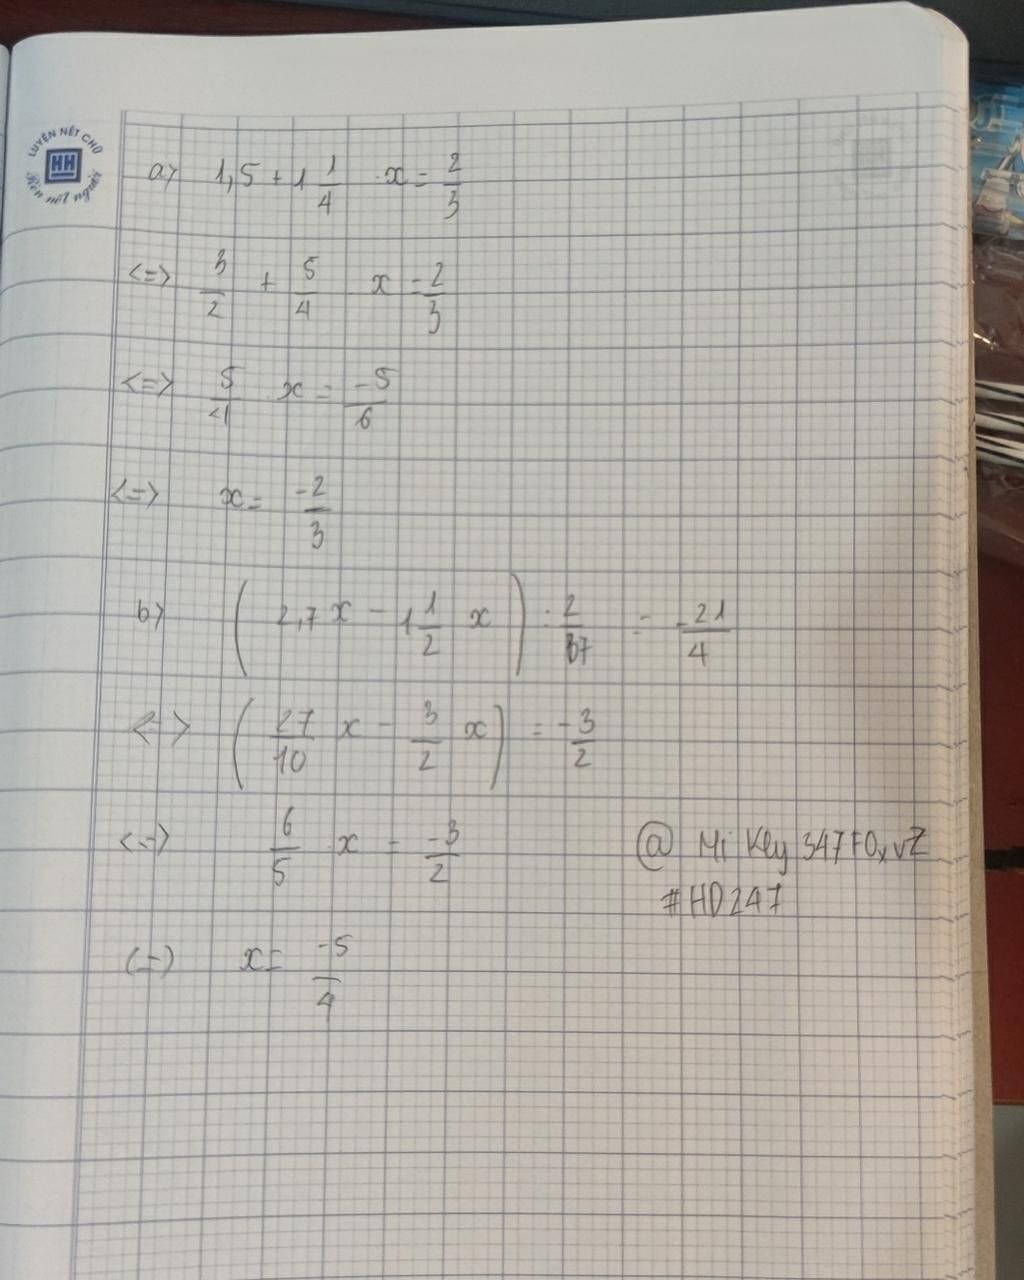 LUYỆN NÉT CHỮ
HH
Rèn nết người
a) 1,5 + 1 1/4 · x = 2/3
<=> 3/2 + 5/4 x = 2/3
<=> 5/4 · x = -5/6
<=> x = -2/3
b) ( 2,7 x - 1 1/2 x ) : 2/7 = -21/4
<=> ( 27/10 x - 3/2 x ) = -3/2
<=> 6/5 · x = -3/2
@ Mi Key 347F0xvZ
#HD247
<=> x = -5/4